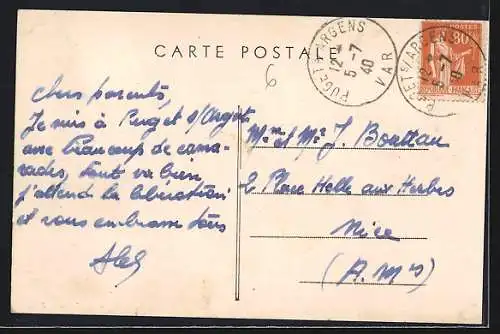 CARTE POSTALE
PUGET S/ARGENS
12 *
5 - 7
40
VAR
PUGET S/ARGENS
12 *
5 - 7
40
VAR
80
RÉPUBLIQUE FRANÇAISE
6
Chers parents,
Je suis à Puget s/Argens
avec beaucoup de cama-
rades, tout va bien
j'attend la libération
et vous embrasse tous
Mme et Mr J. Bouttau
2 Place Halle aux Herbes
Nice
(A. Mes)